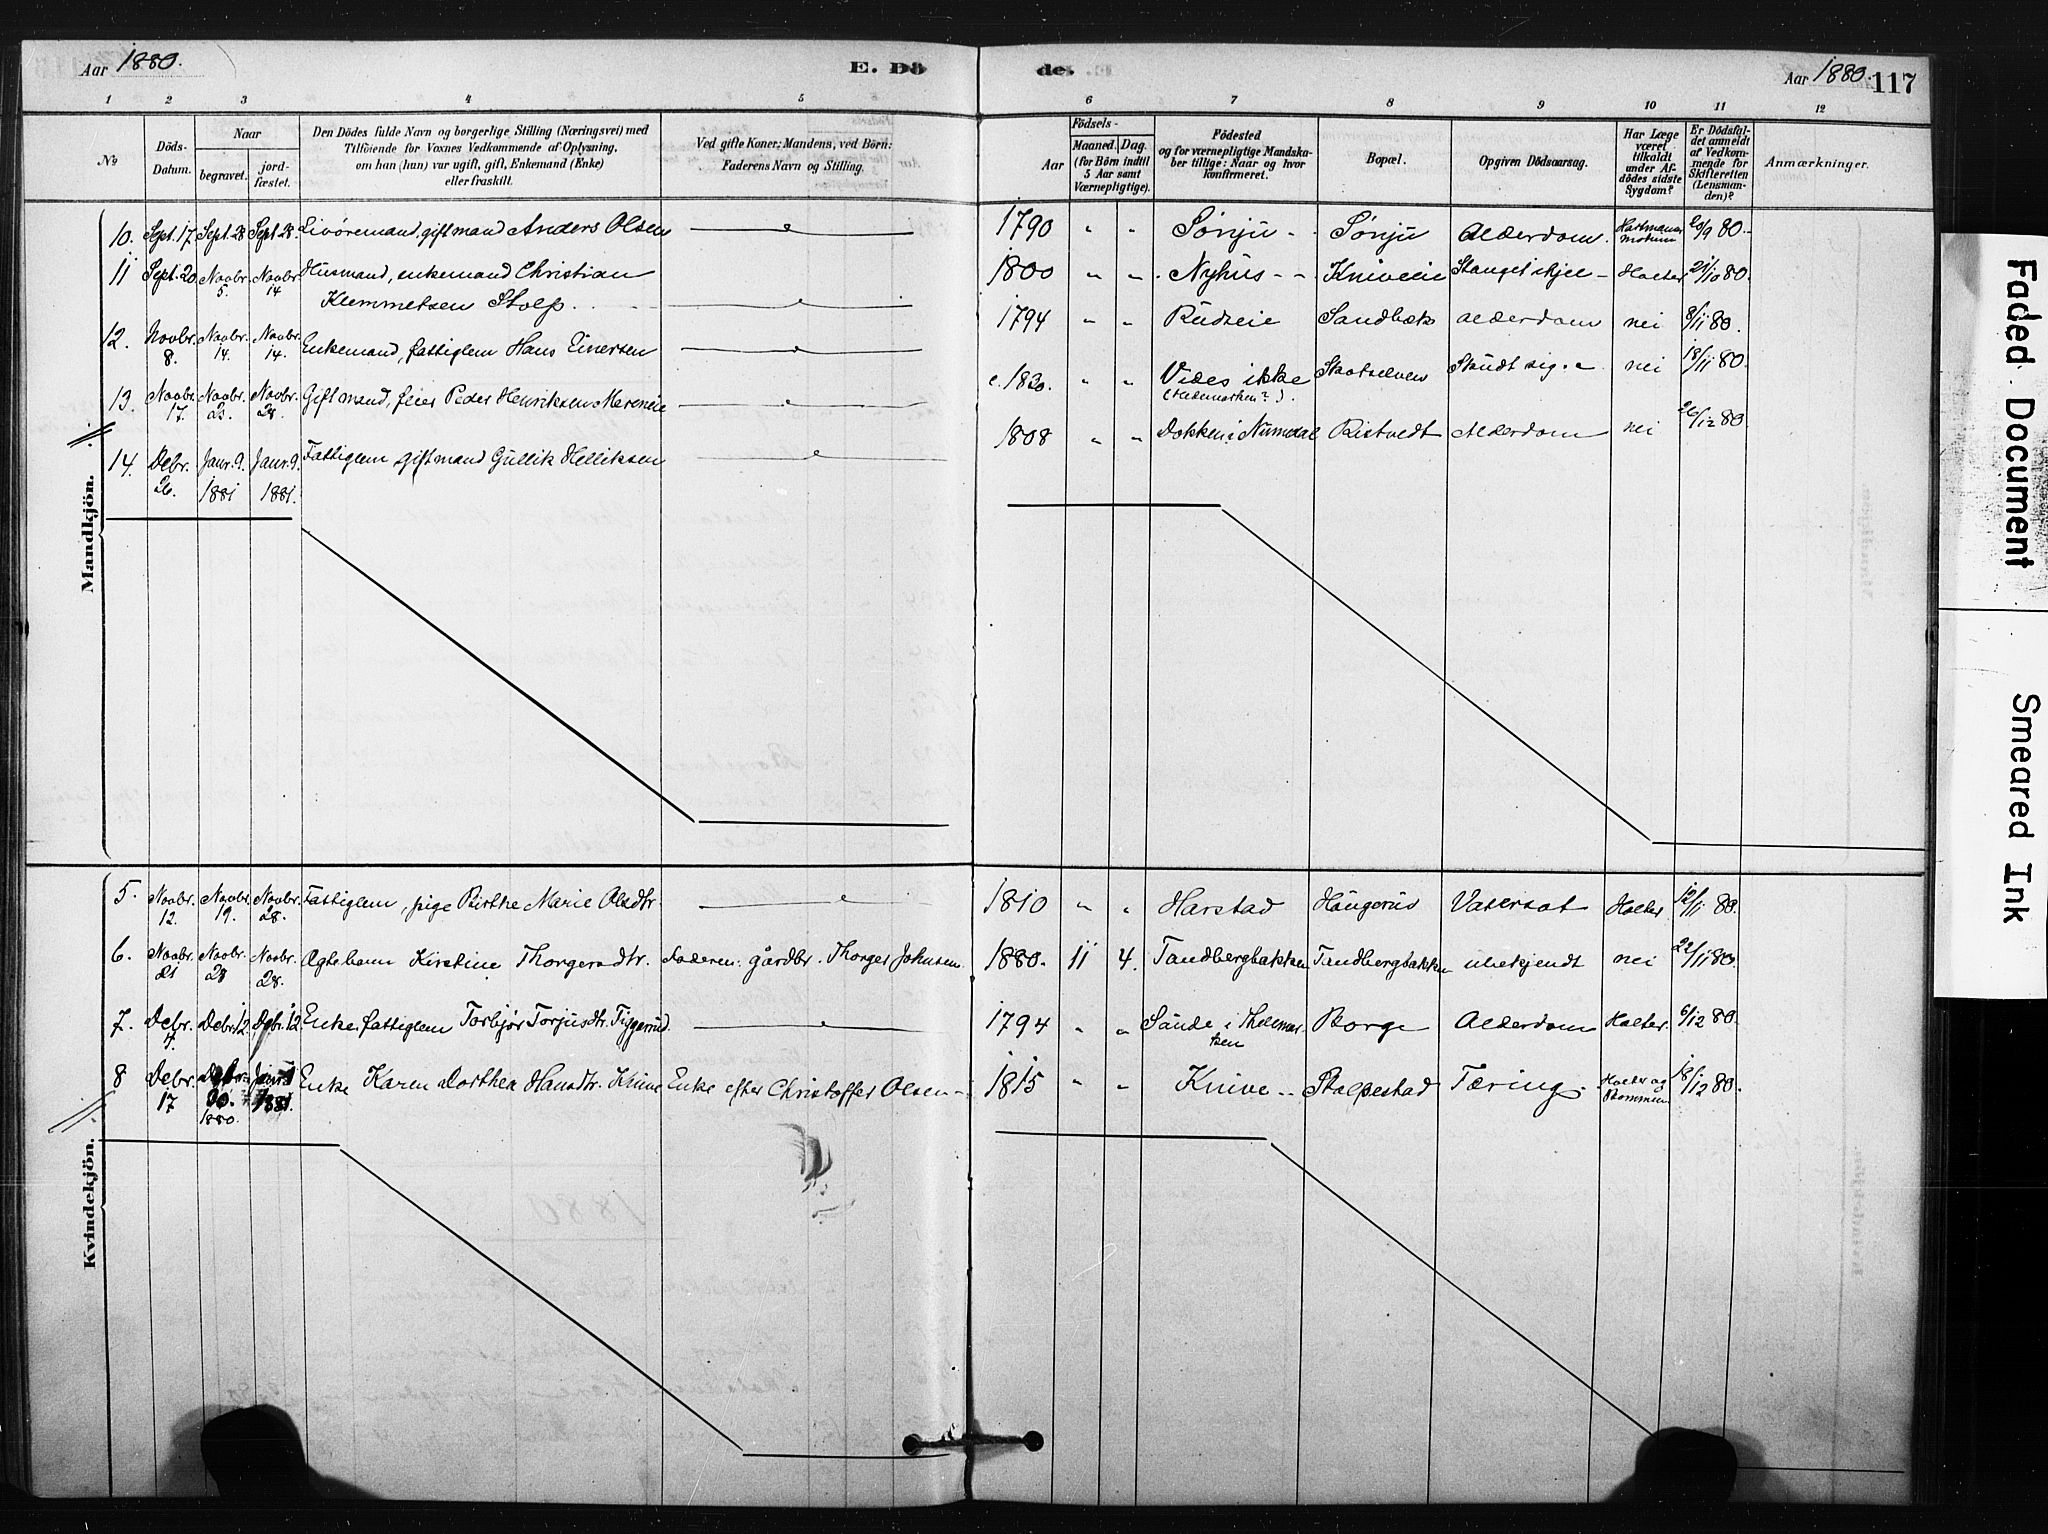 Aar 1880.
E. Dö
de.
Aar 1880.
117
1 2 3 4 5 6 7 8 9 10 11 12
No
Döds-
Datum.
Naar
begravet.
jord-
fæstet.
Den Dödes fulde Navn og borgerlige Stilling (Næringsvei) med
Tilföiende for Voxnes Vedkommende af Oplysning,
om han (hun) var ugift, gift, Enkemand (Enke)
eller fraskilt.
Ved gifte Koner: Mandens, ved Börn:
Faderens Navn og Stilling.
Födsels-
Aar
Maaned. Dag.
(for Börn indtil
5 Aar samt
Værnepligtige).
Födested
og for værnepligtige Mandska-
ber tillige: Naar og hvor
konfirmeret.
Bopæl.
Opgiven Dödsaarsag.
Har Læge
været
tilkaldt
under Af-
dödes sidste
Sygdom?
Er Dödsfal-
det anmeldt
af Vedkom-
mende for
Skifteretten
(Lensman-
den)?
Anmærkninger.
Mandkjön.
10. Sept. 17 Sept. 28 Sept 28. giftmand Anders Olsen 1790 " " Sønju Sønju Alderdom. 20/9 80.
11 Sept. 20 Novbr. 5. Novbr. 14 Husmand, enkemand Christian
Klemmetsen Stolp. 1800 " " Nyhus Kniveeie Holter 21/10 80.
12. Novbr. 8. Novbr. 14. Novbr. 14. Enkemand, fattiglem Hans Einersen 1794 " " Rudseie Sandbæk Alderdom nei 8/11 80.
13. Novbr. 17. Novbr. 23. Novbr. 28. Gift mand, feier Peder Henriksen Mereneie c. 1820. " " Vides ikke
(Hedemarken?). nei 18/11 80.
14. Debr. 26. Janr. 9. 1881 Janr. 9. 1881. Fattiglem, giftmand Gullik Helliksen 1808 " " Dokken i Numedal Ristvedt Alderdom nei 26/12 80
Kvindekjön.
5. Novbr. 12. Novbr. 19. Novbr. 28. Fattiglem, pige Birthe Marie Olsdtr. 1810 " " Harstad Haugerud Vatersot Holter 12/11 80.
6. Novbr. 21 Novbr. 28 Novbr. 28. Ægtebarn Kirstine Thorgersdtr. Faderen: gårdbr. Thorger Johnsen 1880. 11 4. Tandbergbakken Tandbergbakken ubekjendt nei 22/11 80.
7. Debr. 4. Debr. 12. Debr. 12. Enke, fattiglem Torbjør Torjusdtr. Tiggerud. 1794 " " Sande i Thelemar-
ken Borge Alderdom Holter. 6/12 80.
8 Debr. 17 1880. Janr. 1881. Enke Karen Dorthea Hansdtr. Knive Enke efter Christoffer Olsen 1815 " " Knive Stolpestad Tæring. Holter og 18/12 80.
Faded Document
Smeared Ink